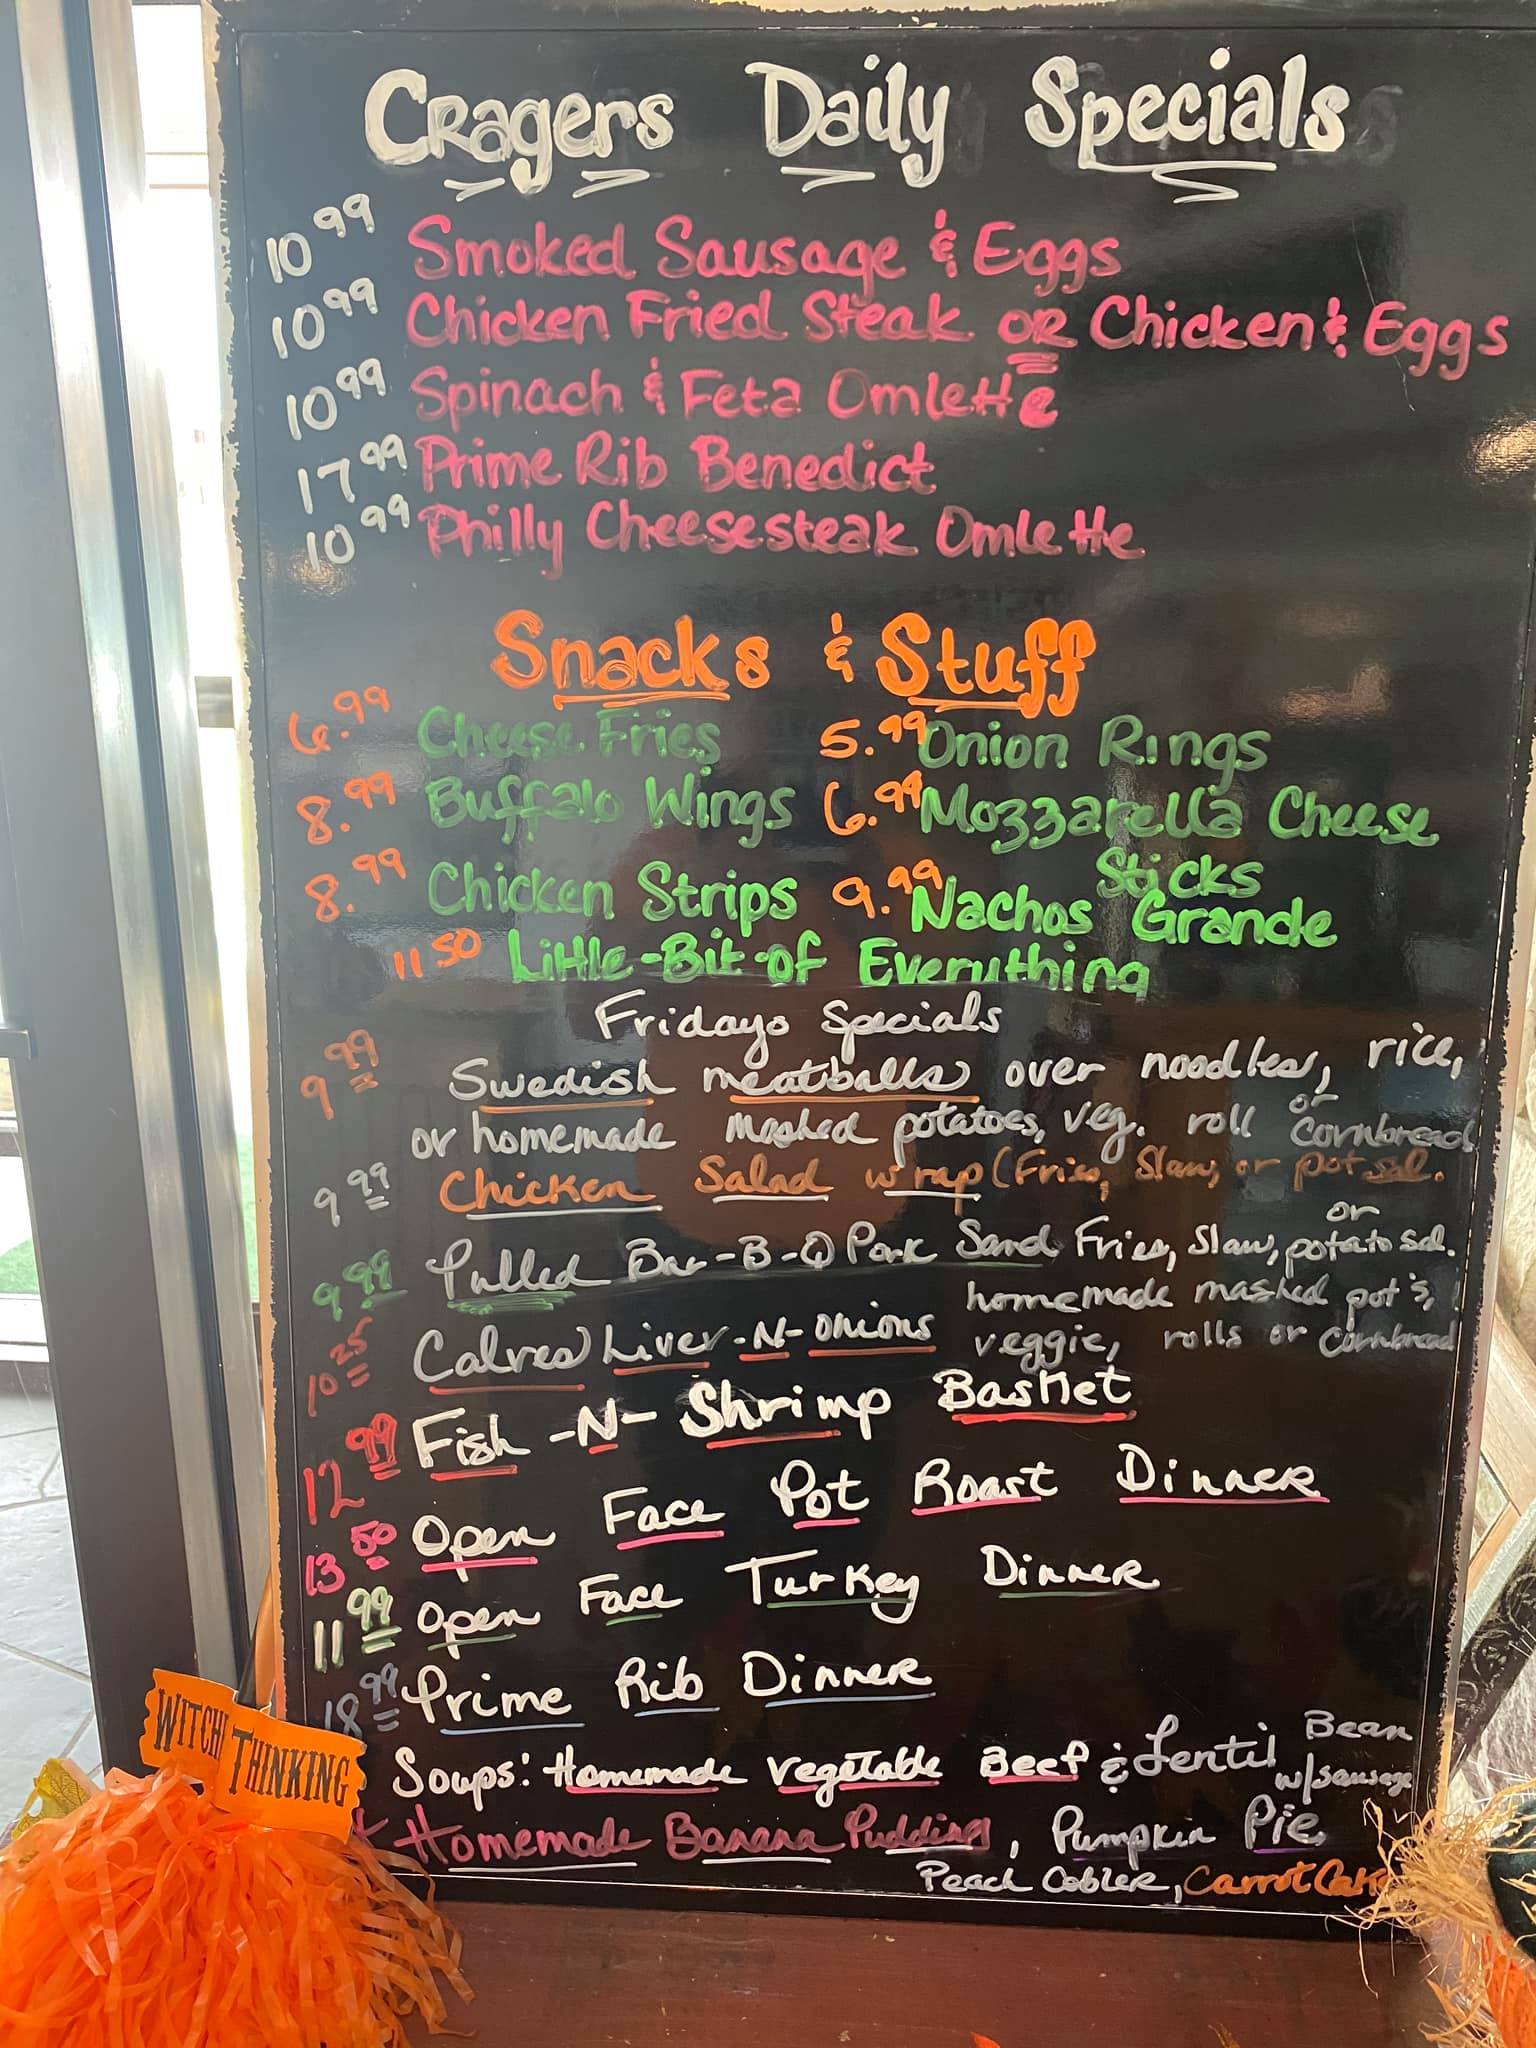 Cragers Daily Specials
10 99 Smoked Sausage & Eggs
10 99 Chicken Fried Steak OR Chicken & Eggs
10 99 Spinach & Feta Omlette
17 99 Prime Rib Benedict
10 99 Philly Cheesesteak Omlette
Snacks & Stuff
6.99 Cheese Fries 5.99 Onion Rings
8.99 Buffalo Wings 6.99 Mozzarella Cheese
Sticks
8.99 Chicken Strips 9.99 Nachos Grande
11 50 Little-Bit-of Everything
Fridays Specials
9 99 Swedish meatballs over noodles, rice,
or homemade mashed potatoes, veg. roll or cornbread
9 99 Chicken Salad wrap (Fries, Slaw, or pot sal.
9 99 Pulled Bar-B-Q Pork Sand Fries, Slaw, or potato sal.
10 25 Calves Liver-N-onions homemade mashed pot's,
veggie, rolls or cornbread
12 99 Fish-N-Shrimp Basket
13 50 Open Face Pot Roast Dinner
11 99 Open Face Turkey Dinner
18 99 Prime Rib Dinner
Soups: Homemade vegetable Beef & Lentil Bean
w/sausage
Homemade Banana Pudding, Pumpkin Pie,
Peach Cobler, Carrot Cake
WITCH
THINKING